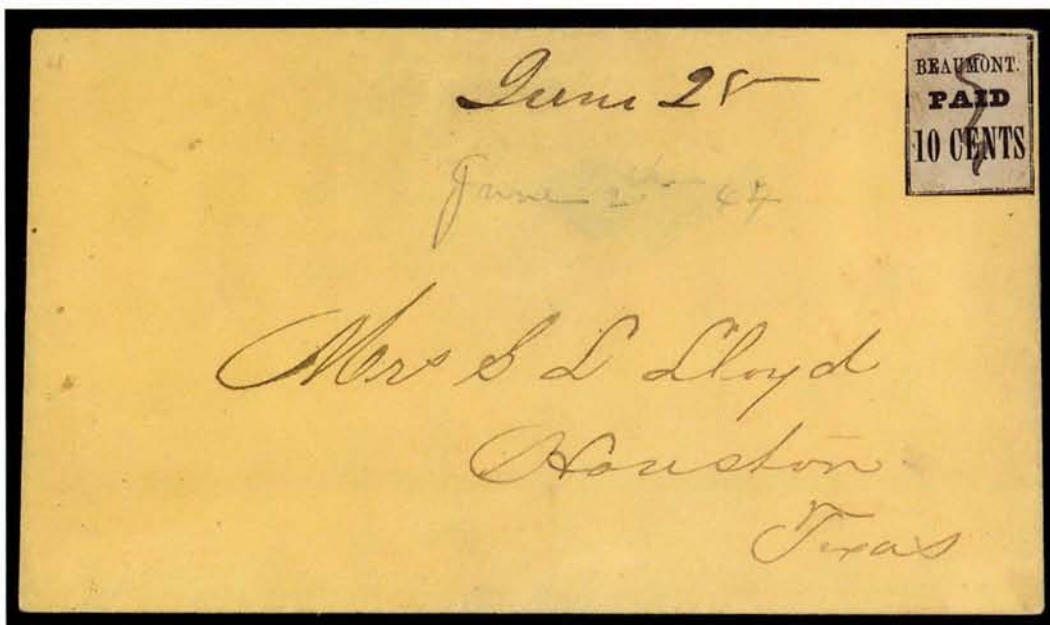 June 28
BEAUMONT.
PAID
10 CENTS
June
Mrs S L Lloyd
Houston
Texas